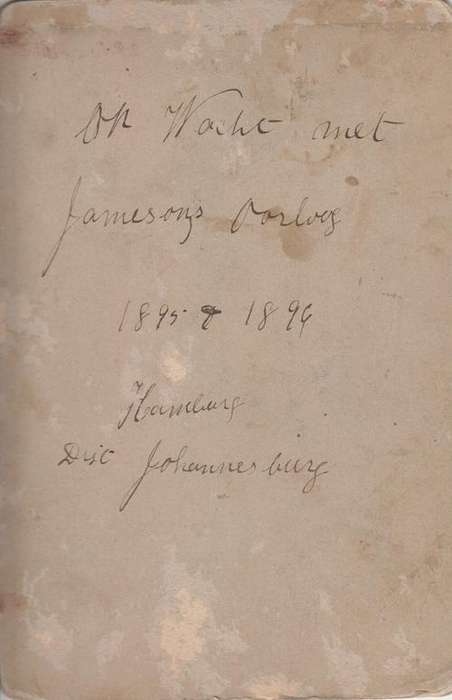 Op Wacht met
Jamesons Oorlog
1895 & 1896
Hamburg
Disc Johannesburg